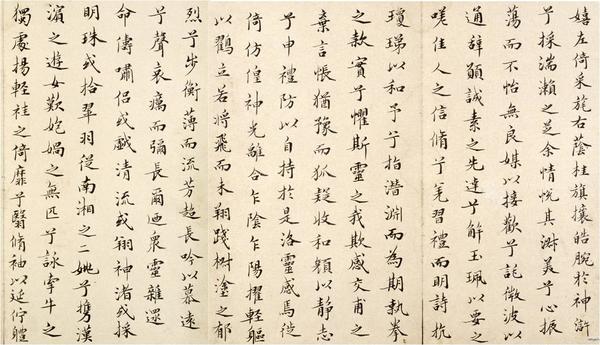 嬉左倚采旄右蔭桂旗攘皓腕於神滸
兮採湍瀨之芝余情悅其淑美兮心振
蕩而不怡無良媒以接歡兮託微波以
通辭願誠素之先達兮解玉珮以要之
嗟佳人之信脩兮羌習禮而明詩抗
瓊珶以和予兮指潛淵而為期執拳
之款實兮懼斯靈之我欺感交甫之
棄言悵猶豫而狐疑收和顏以靜志
兮申禮防以自持於是洛靈感焉徙
倚仿偟神光離合乍陰乍陽擢輕軀
以鶴立若將飛而未翔踐椒塗之郁
烈兮步衡薄而流芳超長吟以慕遠
兮聲哀而彌長爾迺衆靈雜還
命儔嘯侶或戲清流或翔神渚或採
明珠或拾翠羽從南湘之二姚兮携漢
濱之遊女歎媧之無匹兮詠牽牛之
獨處揚輕袿之倚靡兮翳脩袖以延佇體